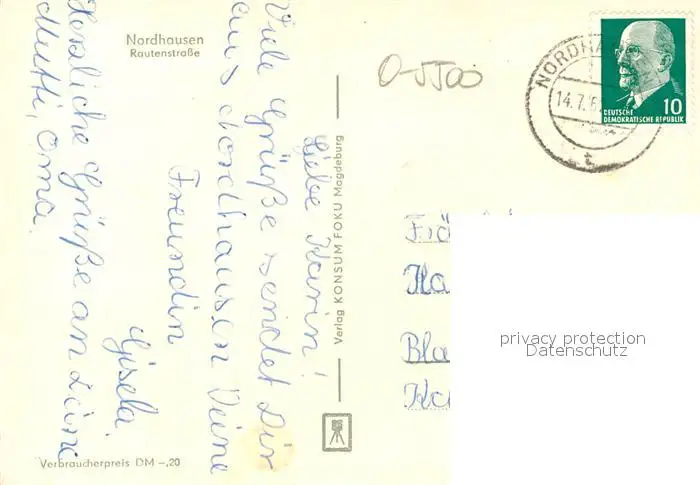 Nordhausen
Rautenstraße
Liebe Karin!
Viele Grüße sendet Dir
aus Nordhausen Deine
Freundin
Gisela.
Herzliche Grüße an Deine
Mutti, Oma.
Verbraucherpreis DM -,20
Verlag KONSUM FOKU Magdeburg
0-5500
NORDHA
14.7.6
t
10
DEUTSCHE
DEMOKRATISCHE REPUBLIK
Frä
Ka
Bla
privacy protection
Datenschutz